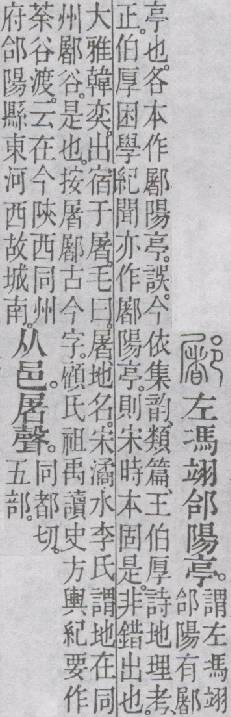 左馮翊郃陽亭。謂左馮翊
郃陽有䣝
亭也。各本作䣝陽亭。誤。今依集韵、類篇、王伯厚詩地理考
正。伯厚困學紀聞亦作䣝陽亭。則宋時本固是非錯出也。
大雅韓奕。出宿于屠。毛曰。屠、地名。宋潏水李氏謂地在同
州䣝谷。是也。按屠䣝古今字。顧氏祖禹讀史方輿紀要作
荼谷渡。云在今陝西同州
府郃陽縣東河西故城南。从邑。屠聲。同都切。
五部。